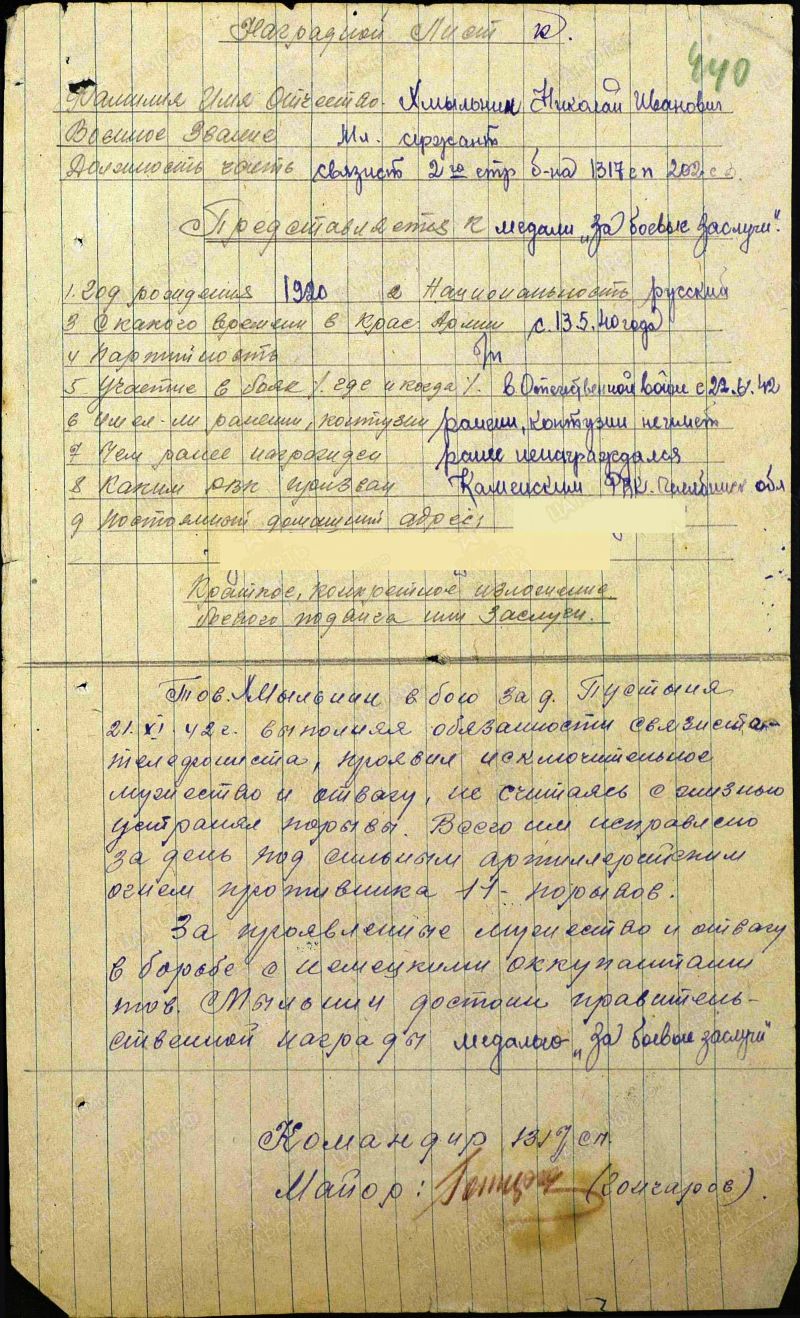 Наградной Лист
440
Фамилия Имя Отчество. Хмыльнин Николай Иванович
Военное Звание Мл. сержант
Должность часть связист 2го стр б-на 1317 сп 202 с д.
Представляется к медали „За боевые заслуги".
1. Год рождения 1920 2 Национальность русский
3 С какого времени в Крас. Армии с 13.5.40 года
4 Партийность б/п
5 Участие в боях /. где и когда /. в Отечественной войне с
6 Имел-ли ранении, контузии ранении, контузии не имеет
7 Чем ранее награжден ранее ненаграждался
8 Каким рвк призван Каменским РВК. Челябинск обл
9 Постоянный домашний адрес:
Краткое, конкретное изложение
боевого подвига или Заслуги.
Тов. Хмыльнин в бою за д. Пустыня
21. XI. 42 г. выполняя обязанности связиста-
телефониста, проявил исключительное
мужество и отвагу, не считаясь с жизнью
устранял порывы. Всего им исправлено
за день под сильным артиллерийским
огнем противника 11 - порывов.
За проявленные мужество и отвагу
в борьбе с немецкими оккупантами
тов. Хмыльнин достоин правитель-
ственной награды медалью „За боевые заслуги"
Командир 1317 сп.
Майор: (Гончаров).